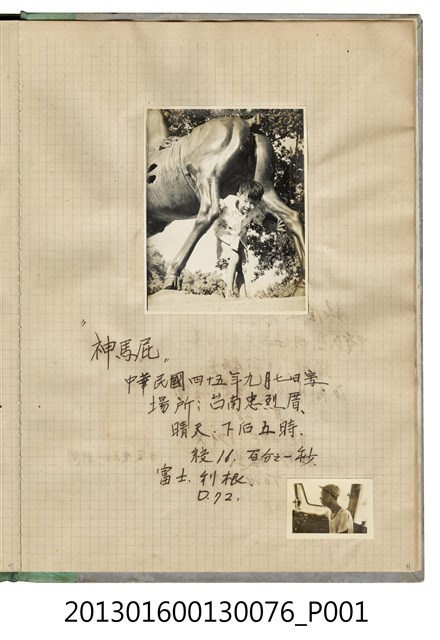 "神馬屁"
中華民國四十五年九月七日寫
場所：台南忠烈厝
晴天．下后五時．
校16．百分之一秒
富士．利根．
D.72.
201301600130076_P001